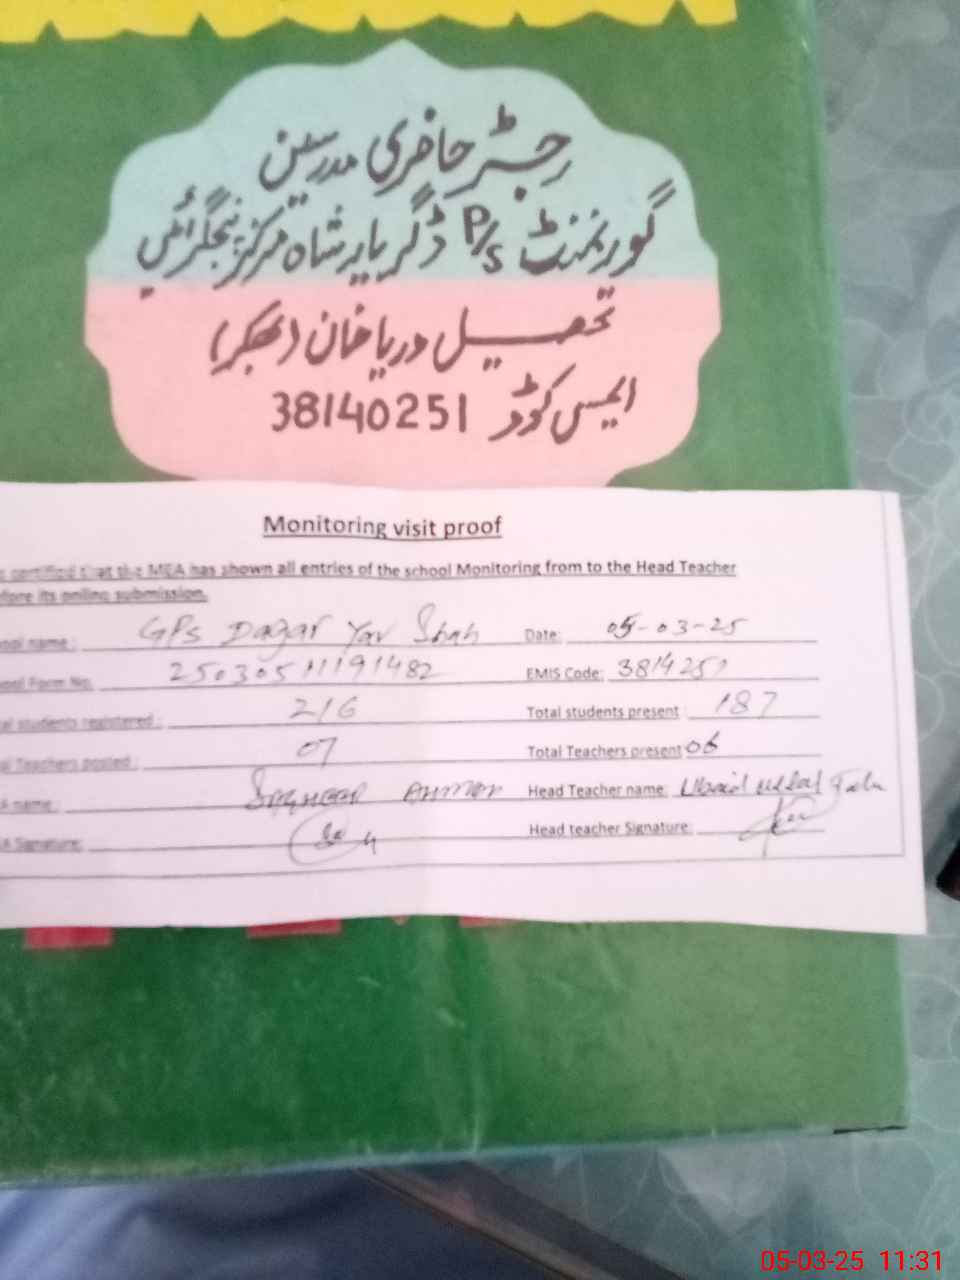 رجسٹر حاضری مدرسین
گورنمنٹ P/S ڈگر یار شاہ مرکز
تحصیل دریا خان (بھکر)
ایمس کوڈ 38140251
Monitoring visit proof
certified that the MEA has shown all entries of the school Monitoring from to the Head Teacher
before its online submission.
name : GPS Dagar Yar Shah Date: 05-03-25
Form No. 25030511191482 EMIS Code: 3814251
students registered : 216 Total students present 187
Teachers posted : 07 Total Teachers present 06
name : Ahmad Head Teacher name: Ubaid
Signature: Head teacher Signature:
05-03-25 11:31